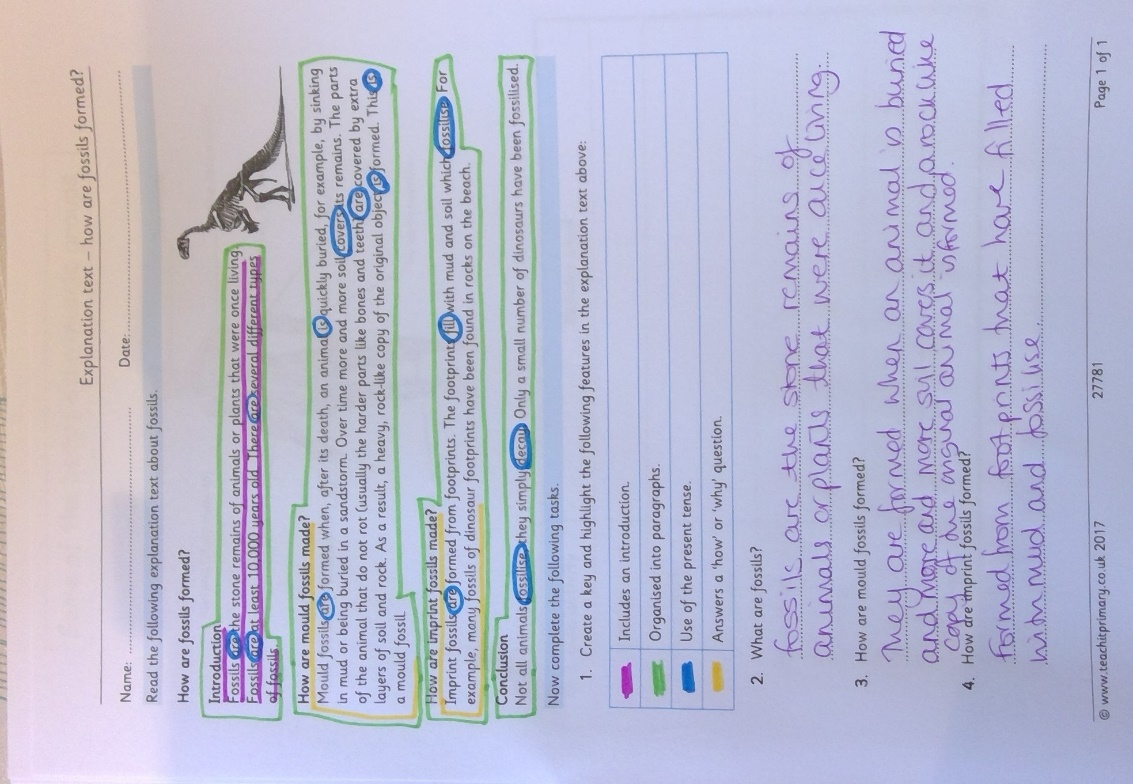 Explanation text – how are fossils formed?
Name: Date:
Read the following explanation text about fossils.
How are fossils formed?
Introduction
Fossils are the stone remains of animals or plants that were once living.
Fossils are at least 10,000 years old. There are several different types
of fossils.
How are mould fossils made?
Mould fossils are formed when, after its death, an animal is quickly buried, for example, by sinking
in mud or being buried in a sandstorm. Over time more and more soil covers its remains. The parts
of the animal that do not rot (usually the harder parts like bones and teeth) are covered by extra
layers of soil and rock. As a result, a heavy, rock-like copy of the original object is formed. This is
a mould fossil.
How are imprint fossils made?
Imprint fossils are formed from footprints. The footprints fill with mud and soil which fossilise. For
example, many fossils of dinosaur footprints have been found in rocks on the beach.
Conclusion
Not all animals fossilise, they simply decay. Only a small number of dinosaurs have been fossilised.
Now complete the following tasks.
1. Create a key and highlight the following features in the explanation text above:
Includes an introduction.
Organised into paragraphs.
Use of the present tense.
Answers a 'how' or 'why' question.
2. What are fossils?
fossils are the stone remains of
animals or plants that were once living.
3. How are mould fossils formed?
They are formed when an animal is buried
and more and more soil covers it and a rock like
copy of the original animal is formed.
4. How are imprint fossils formed?
Formed from footprints that have filled
with mud and fossilise.
© www.teachitprimary.co.uk 2017 27781 Page 1 of 1